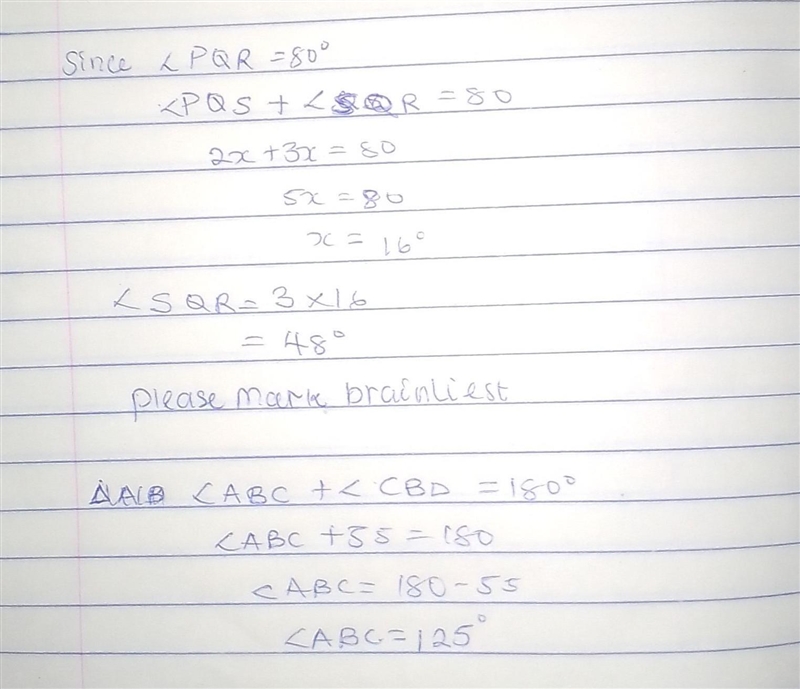 Since ∠PQR = 80°
∠PQS + ∠SQR = 80
2x + 3x = 80
5x = 80
x = 16°
∠SQR = 3 × 16
= 48°
please mark brainliest
∠ABC + ∠CBD = 180°
∠ABC + 55 = 180
∠ABC = 180 - 55
∠ABC = 125°